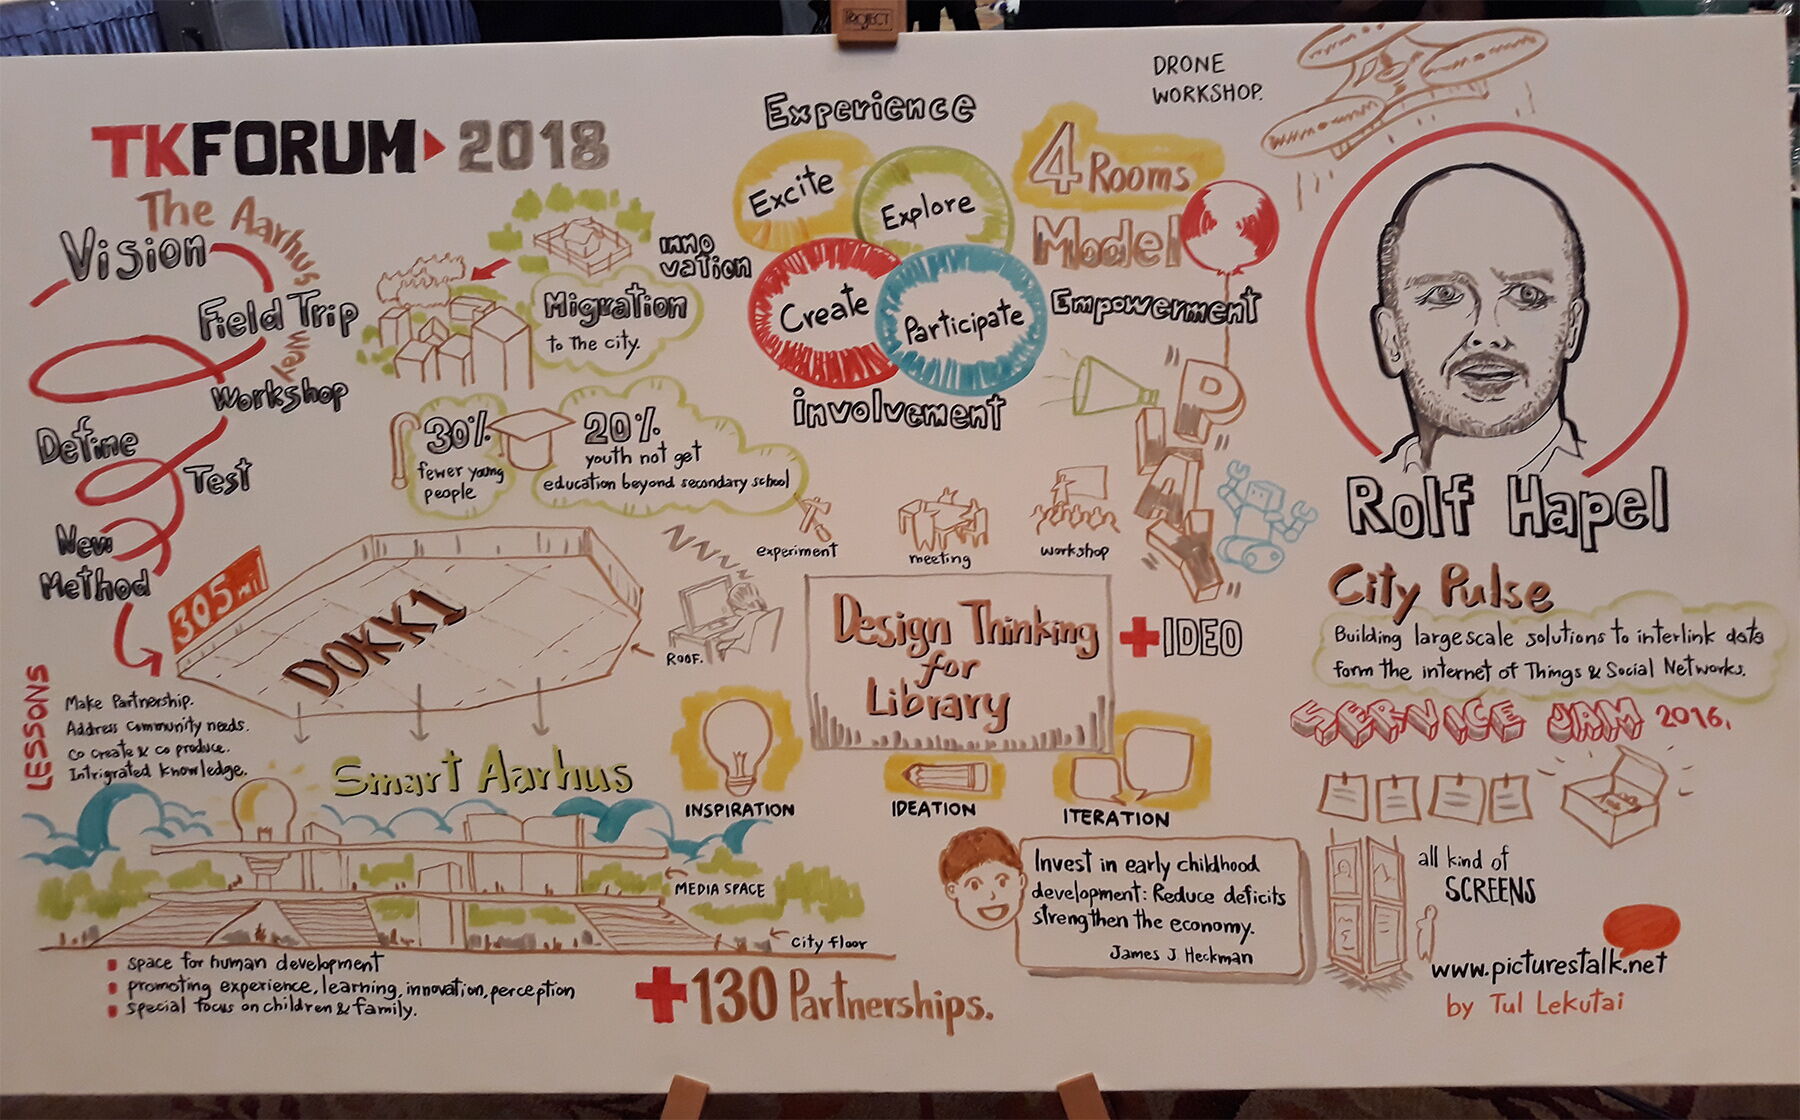 PROJECT
TKFORUM 2018
The Aarhus Way
Vision
Field Trip
Workshop
Define
Test
New
Method
INNO
vation
Migration
to the city.
30%
fewer young
people
20%
youth not get
education beyond secondary school
Experience
Excite
Explore
Create
Participate
involvement
4 Rooms
Model
Empowerment
PLAY
DRONE
WORKSHOP.
Rolf Hapel
305 mil
DOKK1
ROOF.
LESSONS
Make Partnership.
Address Community needs.
Co create & co produce.
Intrigrated knowledge.
Smart Aarhus
MEDIA SPACE
City floor
space for human development
promoting experience, learning, innovation, perception
special focus on children & family.
+130 Partnerships.
experiment
meeting
workshop
Design Thinking
for
Library
+IDEO
INSPIRATION
IDEATION
ITERATION
Invest in early childhood
development: Reduce deficits
strengthen the economy.
James J. Heckman
City Pulse
Building large scale solutions to interlink data
form the internet of Things & Social Networks.
SERVICE JAM 2016.
all kind of
SCREENS
www.picturestalk.net
by Tul Lekutai